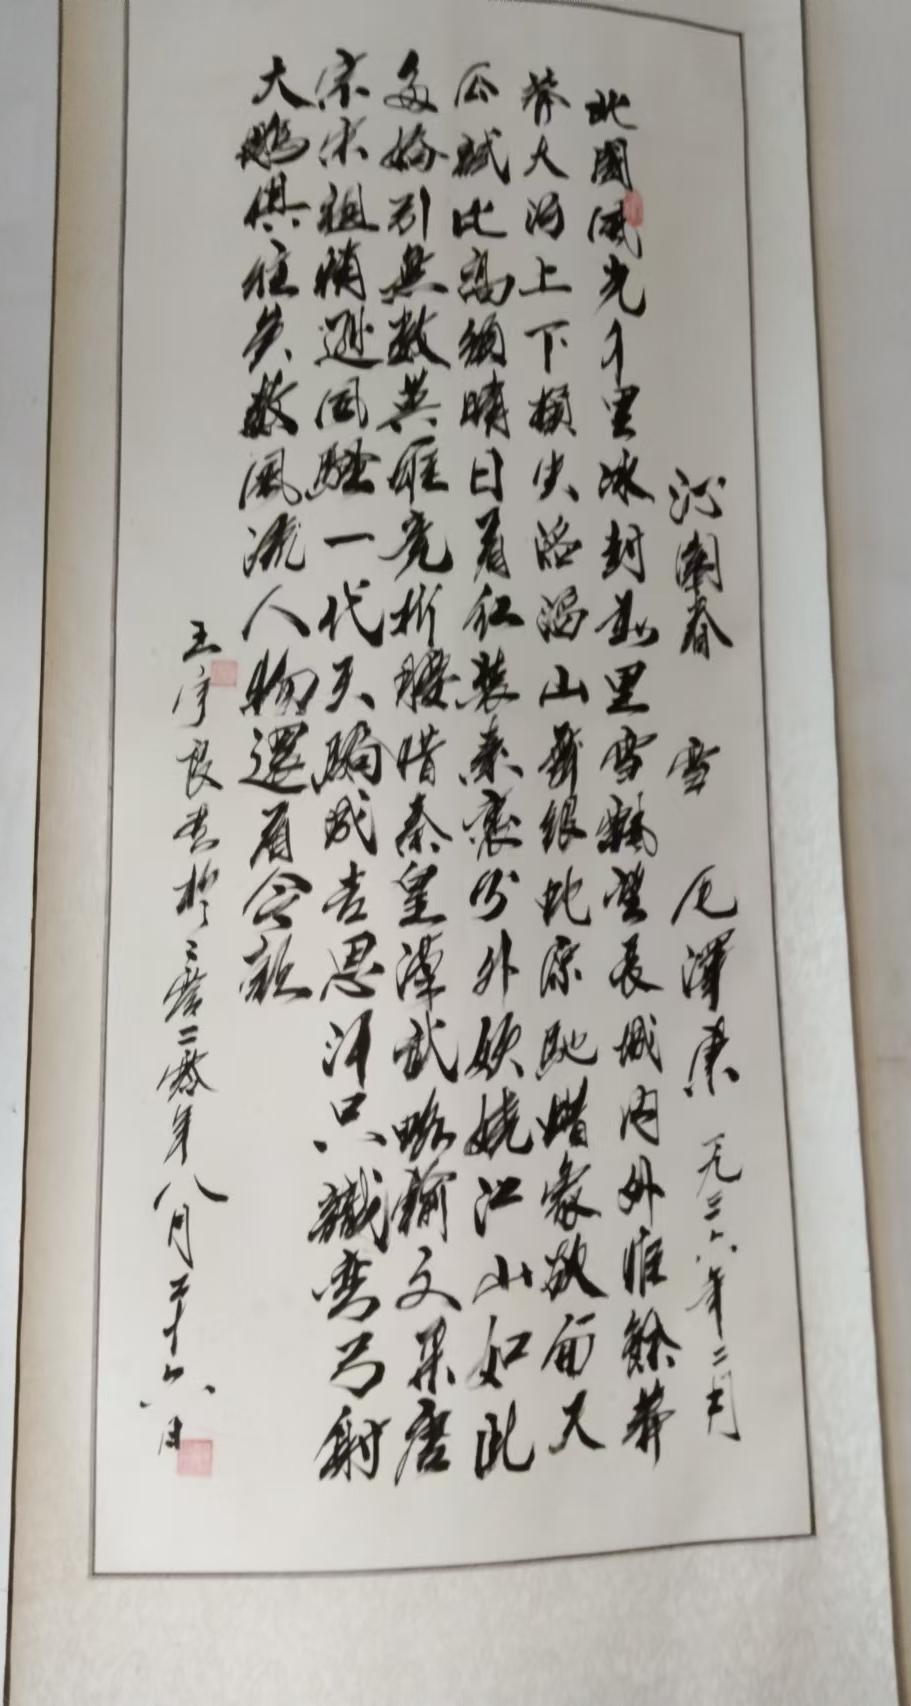 沁園春 雪 毛澤東 一九三六年二月
北國風光千里冰封萬里雪飄望長城内外惟餘莽
莽大河上下頓失滔滔山舞銀蛇原馳蠟象欲與天
公試比高須晴日看紅裝素裹分外妖嬈江山如此
多嬌引無數英雄竞折腰惜秦皇漢武略輸文采唐
宗宋祖稍遜風騷一代天驕成吉思汗只識彎弓射
大鵰俱往矣數風流人物還看今朝
王良書於二零二零年八月二十六日